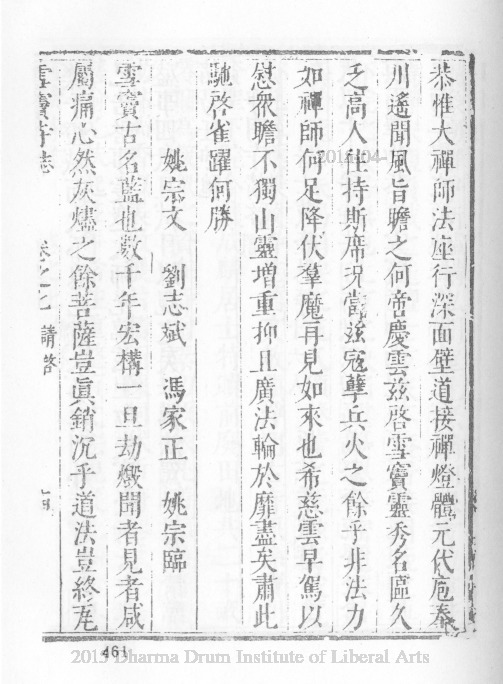 恭惟大禪師法座行深面壁道接禪燈體元代危秦
川遙聞風旨瞻之何啻慶雲茲啓雪竇靈秀名區久
乏高人住持斯席況當茲寇孽兵火之餘乎非法力
如禪師何足降伏羣魔再見如來也希慈雲早駕以
慰衆瞻不獨山靈增重抑且廣法輪於靡盡矣肅此
馳啓雀躍何勝
姚宗文 劉志斌 馮家正 姚宗臨
雪竇古名藍也數千年宏構一旦劫燬聞者見者咸
屬痛心然灰燼之餘菩薩豈眞銷沉乎道法豈終厄
雪竇寺志 卷之七 請啓
461
2015 Dharma Drum Institute of Liberal Arts